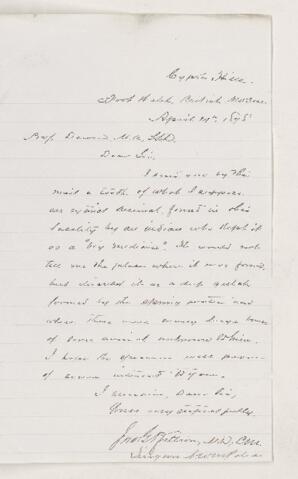 Cypress Hills.
Fort Walsh, British
April 24th, 1878
Dawson M.A. LLD.
Dear Sir,
I send you by this
mail a tooth of what I suppose
an extinct animal, found in this
locality by an Indian who kept it
as a "big medicine". He would not
tell me the place where it was found,
but described it as a deep gulch
formed by the spring water and
where there were many large bones
of some animal unknown to him.
I hope the specimen will prove
of some interest to you.
I remain, Dear Sir,
Yours very respectfully,
Kittson, M.D., C.M.
Surgeon